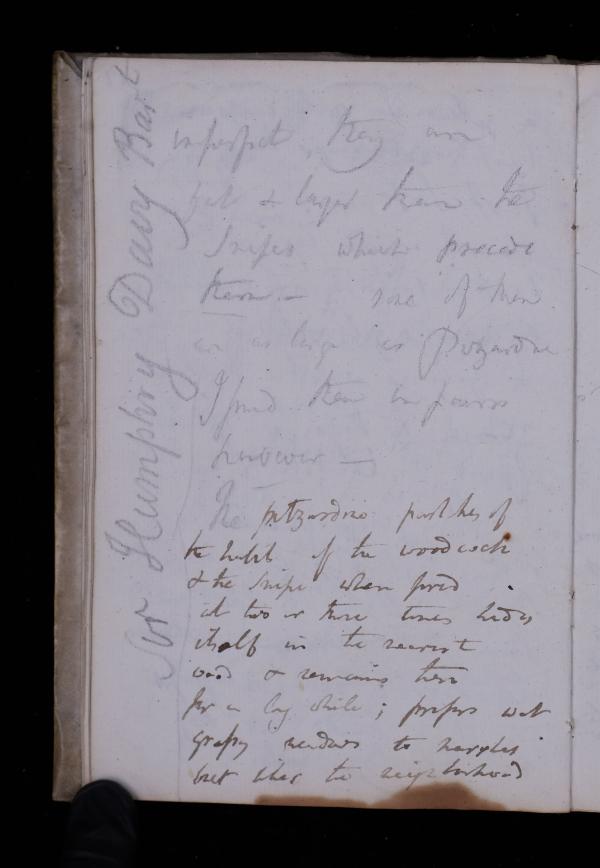 Sir Humphry Davy Bart
imperfect, they are
fat & larger than the
Snipes which precede
them — some of them
are as large as Pitzardine
I found them in pairs
however —
The pitzardine partakes of
the habit of the woodcock
& the snipe when fired
at two or three times hides
itself in the nearest
wood & remains there
for a long while; prefers wet
grassy meadows to marshes
but likes the neighborhood